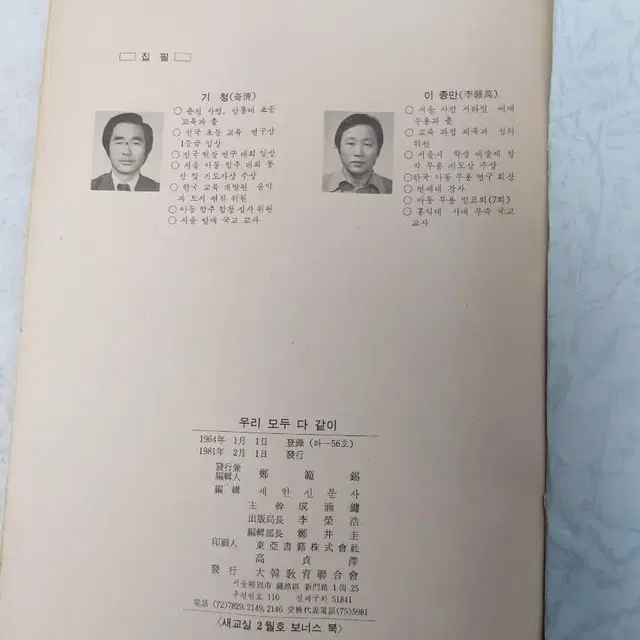 집 필
기 청(奇淸)
○ 춘천 사범, 방통대 초등
교육과 졸
○ 전국 초등 교육 연구상
1등급 입상
○ 전국 현장 연구 대회 입상
○ 서울 아동 합주 대회 동
상 및 지도자상 수상
○ 한국 교육 개발원 음악
과 도서 편찬 위원
○ 아동 합주 합창 심사 위원
○ 서울 방배 국교 교사
이 종만(李鍾萬)
○ 서울 사범 서라벌 예대
무용과 졸
○ 교육 과정 체육과 심의
위원
○ 서울시 학생 예술제
무용 지도상 수상
○ 한국 아동 무용 연구 회장
○ 연세대 강사
○ 아동 무용 발표회(7회)
○ 홍익대 사대 부속 국교
교사
우리 모두 다 같이
1964年 1月 1日 登錄 (라—56호)
1981年 2月 1日 發行
發行兼
編輯人 鄭 範 錫
編 輯 새한신문사
主 幹 成 鏞
出版局長 李 榮 浩
編輯部長 鄭 井 圭
印刷人 東亞書籍株式會社
高 貞 澤
發 行 大韓敎育聯合會
서울特別市 鍾路區 新門路 1街 25
우편번호 110 전체구좌 51841
電話 (72)7829, 2149, 2146 交換代表電話(75)5081
〈새교실 2월호 보너스 북〉